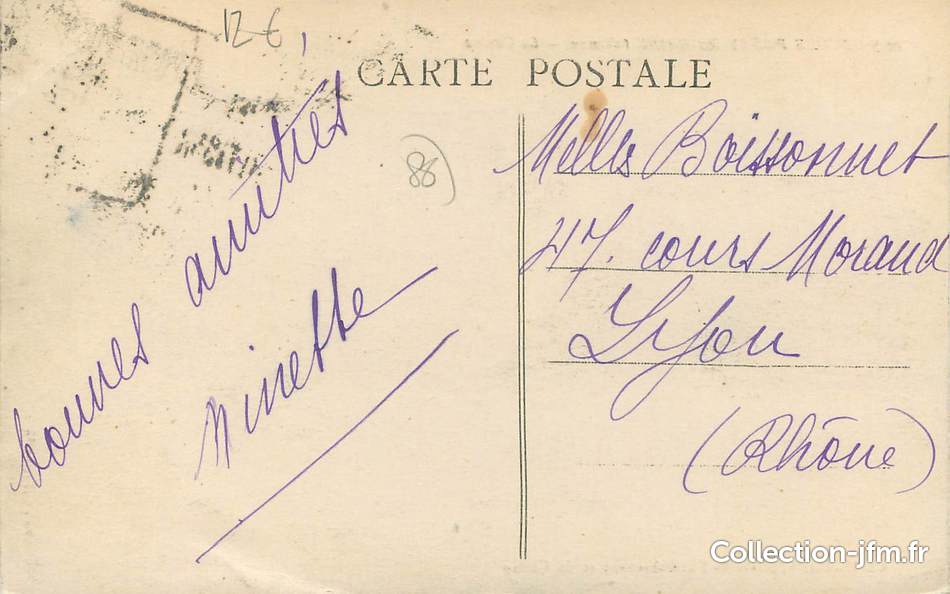 12 €
CARTE POSTALE
88
bonnes amitiés
ninette
Melles Boissonnet
47. cours Morand
Lyon
(Rhône)
Collection-jfm.fr